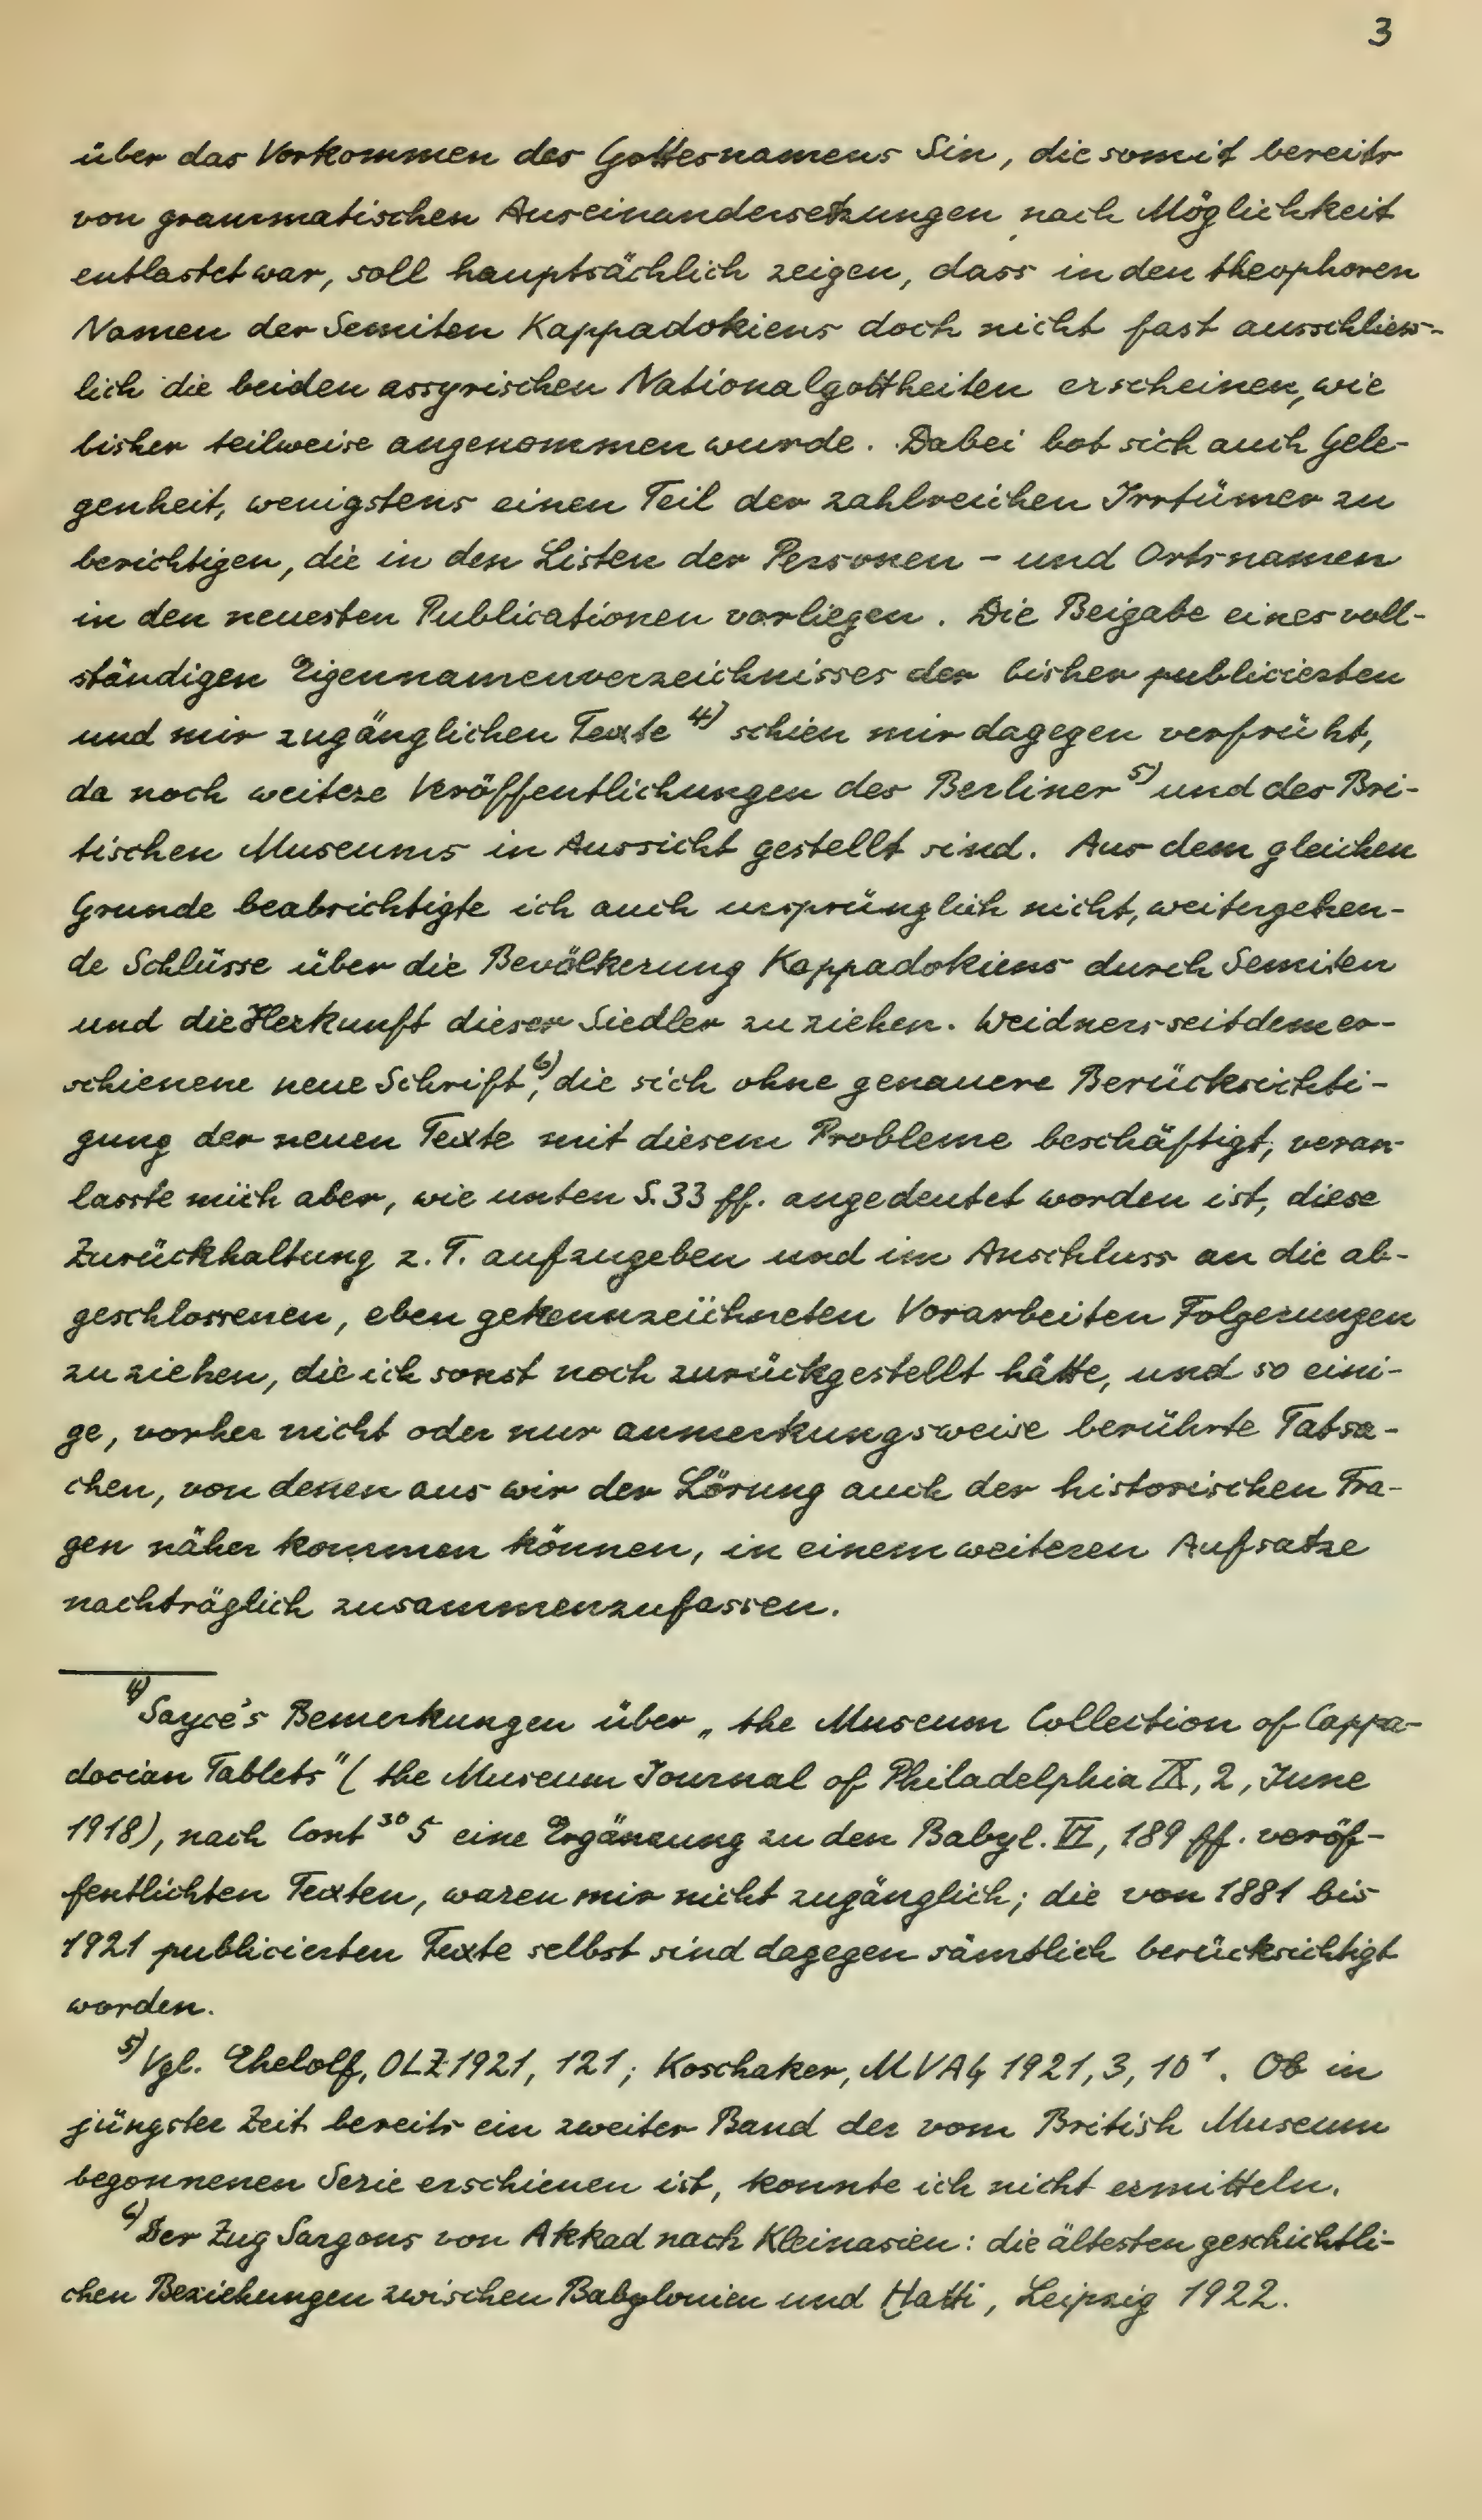 3
über das Vorkommen des Gottesnamens Sin, die somit bereits
von grammatischen Auseinandersetzungen nach Möglichkeit
entlastet war, soll hauptsächlich zeigen, dass in den theophoren
Namen der Semiten Kappadokiens doch nicht fast ausschliess-
lich die beiden assyrischen Nationalgottheiten erscheinen, wie
bisher teilweise angenommen wurde. Dabei bot sich auch Gele-
genheit, wenigstens einen Teil der zahlreichen Irrtümer zu
berichtigen, die in den Listen der Personen- und Ortsnamen
in den neuesten Publicationen vorliegen. Die Beigabe eines voll-
ständigen Eigennamenverzeichnisses der bisher publicierten
und mir zugänglichen Texte 4) schien mir dagegen verfrüht,
da noch weitere Veröffentlichungen des Berliner 5) und des Bri-
tischen Museums in Aussicht gestellt sind. Aus dem gleichen
Grunde beabsichtigte ich auch ursprünglich nicht, weitergehen-
de Schlüsse über die Bevölkerung Kappadokiens durch Semiten
und die Herkunft dieser Siedler zu ziehen. Weidners seitdem er-
schienene neue Schrift 6), die sich ohne genauere Berücksichti-
gung der neuen Texte mit diesem Probleme beschäftigt, veran-
lasste mich aber, wie unten S. 33 ff. angedeutet worden ist, diese
Zurückhaltung z. T. aufzugeben und im Anschluss an die ab-
geschlossenen, eben gekennzeichneten Vorarbeiten Folgerungen
zu ziehen, die ich sonst noch zurückgestellt hätte, und so eini-
ge, vorher nicht oder nur anmerkungsweise berührte Tatsa-
chen, von denen aus wir der Lösung auch der historischen Fra-
gen näher kommen können, in einem weiteren Aufsatze
nachträglich zusammenzufassen.
4) Sayce's Bemerkungen über „the Museum Collection of Cappa-
docian Tablets" (the Museum Journal of Philadelphia IX, 2, June
1918), nach Cont 30 5 eine Ergänzung zu den Babyl. VI, 189 ff. veröf-
fentlichten Texten, waren mir nicht zugänglich; die von 1881 bis
1921 publicierten Texte selbst sind dagegen sämtlich berücksichtigt
worden.
5) Vgl. Ehelolf, OLZ 1921, 121; Koschaker, MVAG 1921, 3, 10¹. Ob in
jüngster Zeit bereits ein zweiter Band der vom British Museum
begonnenen Serie erschienen ist, konnte ich nicht ermitteln.
6) Der Zug Sargons von Akkad nach Kleinasien: die ältesten geschichtli-
chen Beziehungen zwischen Babylonien und Ḫatti, Leipzig 1922.